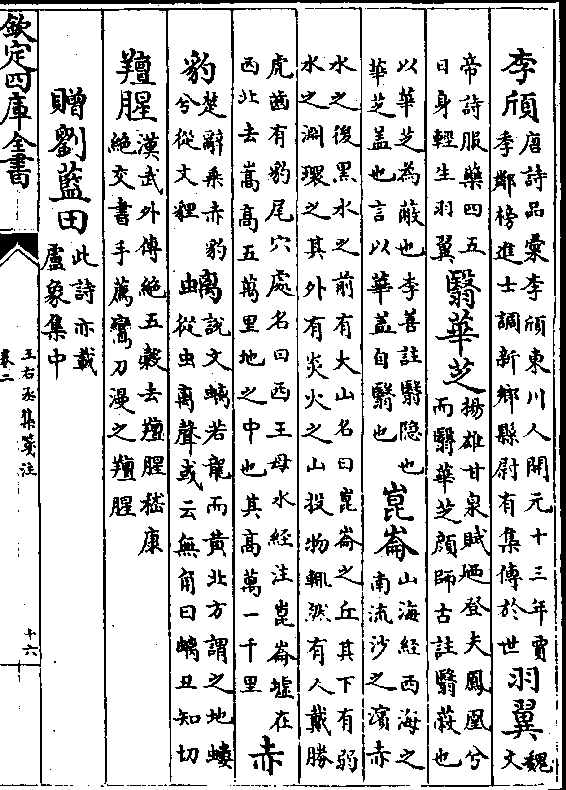 李頎唐詩品彚李頎東川人開元十三年賈季鄰榜進士調新鄉縣尉有集傳於世羽翼魏文
帝詩服藥四五日身輕生羽翼翳華芝揚雄甘泉賦迺登夫鳳凰兮而翳華芝顔師古註翳蔽也
以華芝為蔽也李善註翳隐也華芝盖也言以華盖自翳也崑崙山海經西海之南流沙之濱赤
水之後黑水之前有大山名曰崑崙之丘其下有弱水之淵環之其外有炎火之山投物輒然有人戴勝
虎齒有豹尾穴處名曰西王母水經注崑崙墟在西北去嵩高五萬里地之中也其高萬一千里赤
豹楚辭乘赤豹兮從文貍螭說文螭若龍而黄北方謂之地螻從虫离聲或云無角曰螭丑知切
羶腥漢武外傳絶五穀去羶腥嵇康絶交書手薦鸞刀漫之羶腥
贈劉藍田此詩亦載盧象集中
欽定四庫全書
王右丞集箋注
卷二
十六